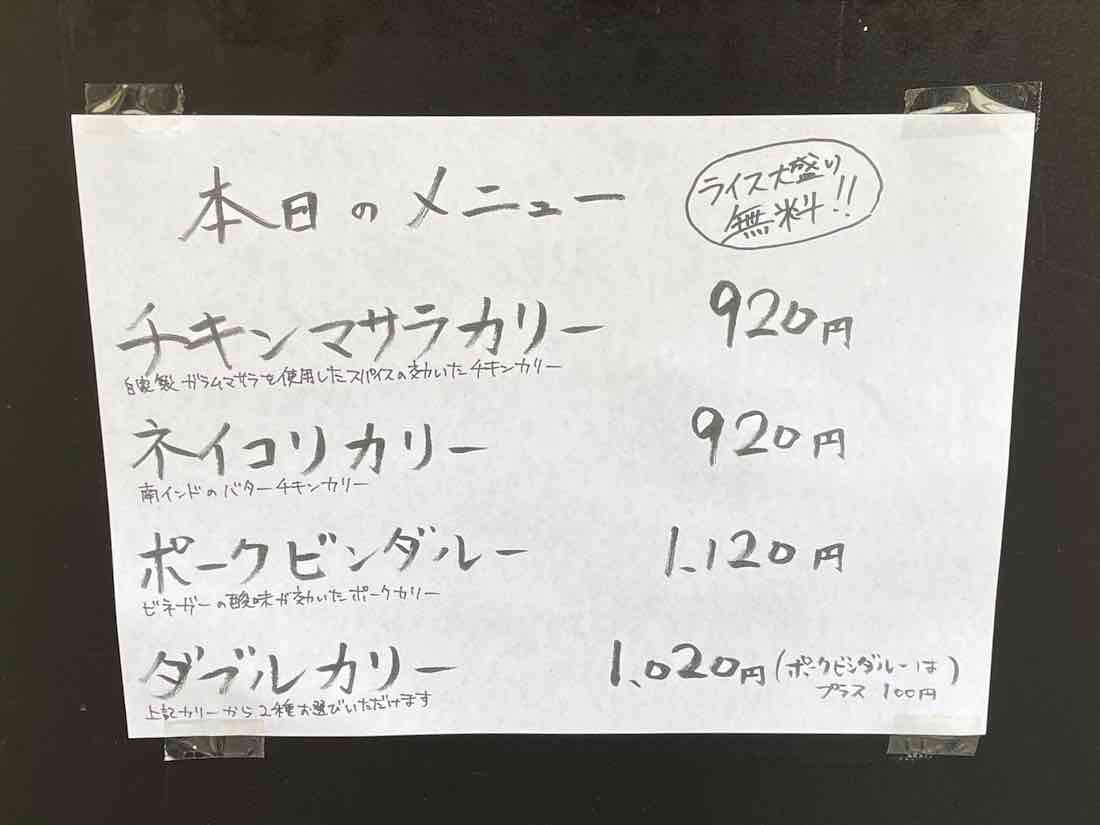 本日のメニュー
ライス大盛り
無料!!
チキンマサラカリー 920円
自家製ガラムマサラを使用したスパイスの効いたチキンカリー
ネイコリカリー 920円
南インドのバターチキンカリー
ポークビンダルー 1,120円
ビネガーの酸味が効いたポークカリー
ダブルカリー 1,020円(ポークビンダルーは
プラス 100円)
上記カリーから2種お選びいただけます